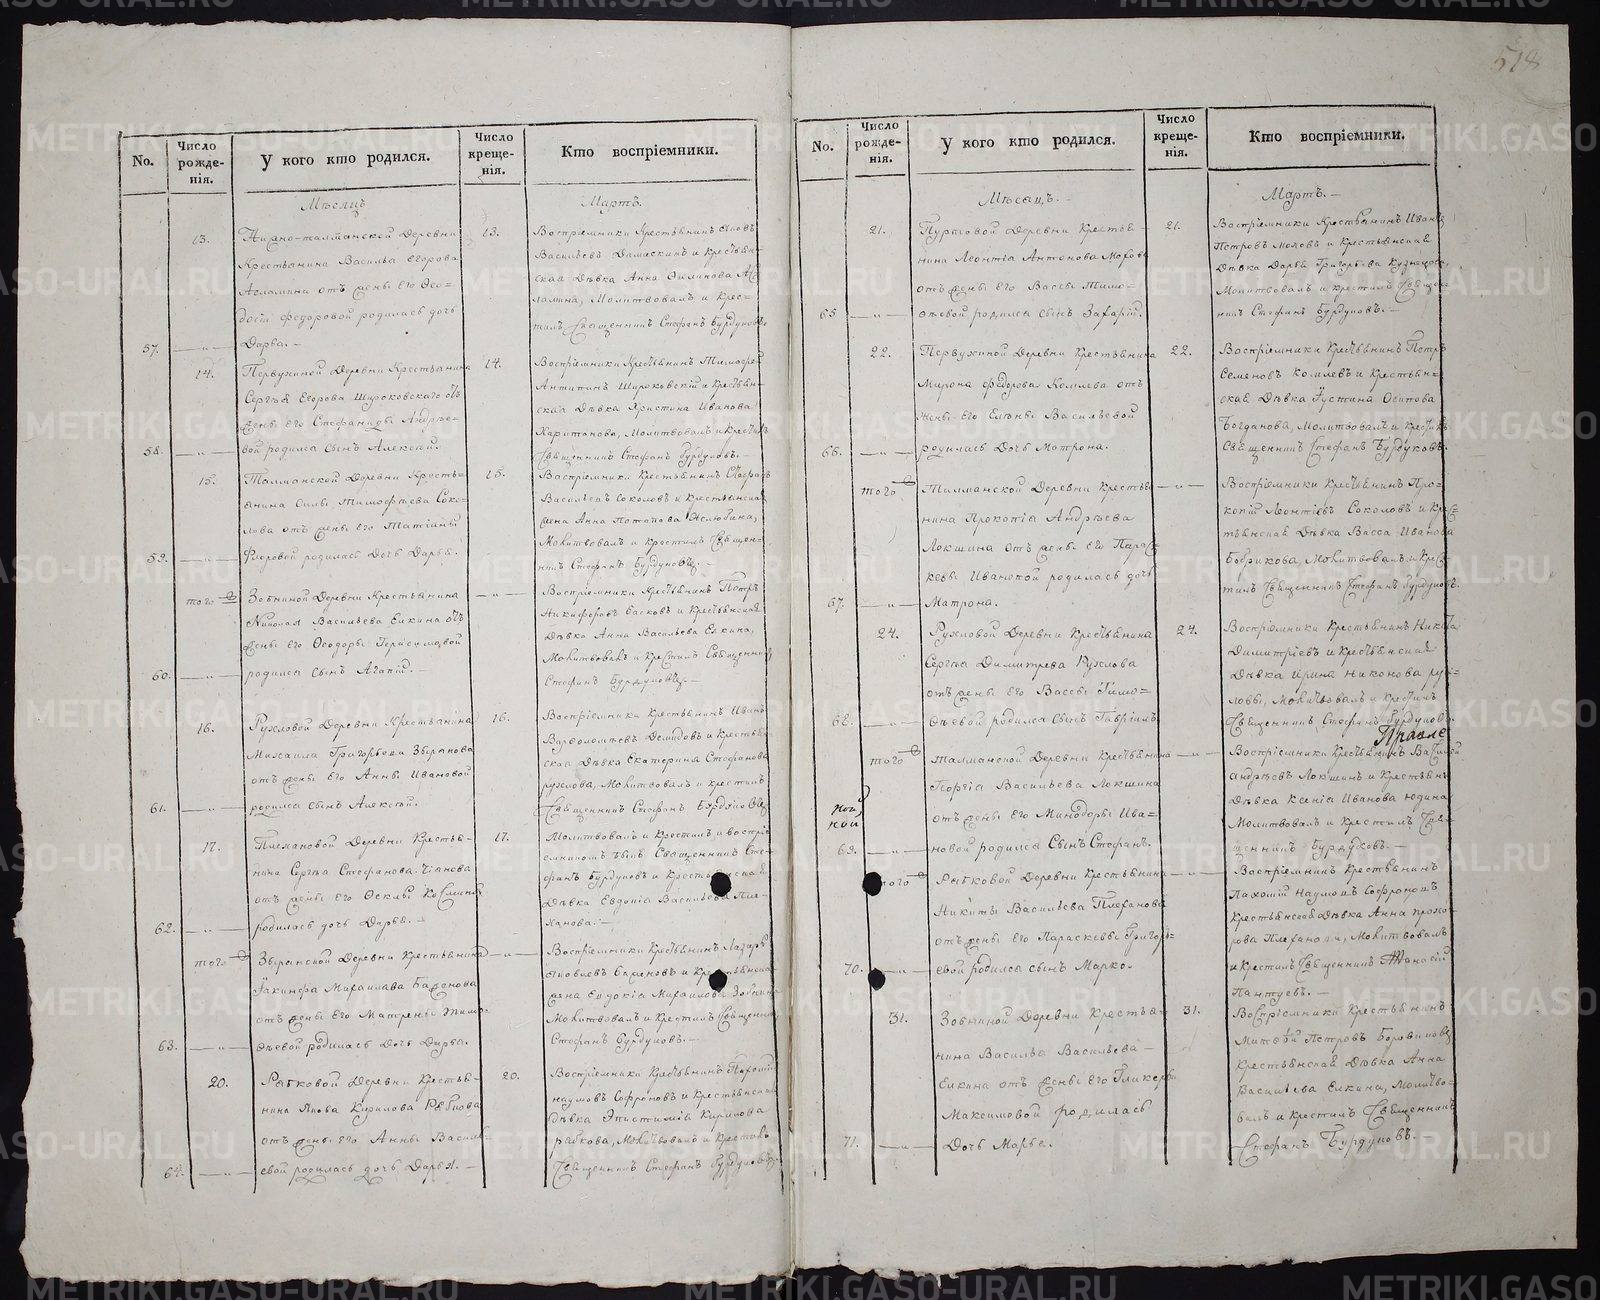 518
No.
Число рожде-
нія.
У кого кто родился.
Число креще-
нія.
Кто воспріемники.
Мѣсяцъ
Мартъ.
13.
Деревни
Крестьянина Василья Егорова
Асламина отъ жены его Ѳео-
досіи Федоровой родилась дочь
57. —„— Дарья.—
13.
Воспріемники Крестьянинъ
Васильевъ Дамаскинъ и Крестьян-
ская Дѣвка Анна
ламина, Молитвовалъ и Крес-
тилъ Священникъ Стефанъ Бурдуковъ
14.
Первухиной Деревни Крестьянина
Сергѣя Егорова Широковскаго отъ
жены его Стефаниды Андрѣе-
58. —„— вой родился Сынъ Алексѣй.
14.
Воспріемники Крестьянинъ Тимофей
Антипинъ Широковскій и Крестьян-
ская Дѣвка Христина Иванова
Харитонова, Молитвовалъ и Крестилъ
Священникъ Стефанъ Бурдуковъ.—
15.
Талманской Деревни Кресть-
янина Силы Тимофѣева Соко-
лова отъ жены его Татіаны
59. —„— Флоровой родилась Дочь Дарья.
15.
Воспріемники Крестьянинъ Стефанъ
Васильевъ Соколовъ и Крестьянская
жена Анна Потапова
Молитвовалъ и Крестилъ Священ-
никъ Стефанъ Бурдуковъ.—
того
Зобниной Деревни Крестьянина
Николая Васильева Елкина отъ
жены его Ѳеодоры Герасимовой
60. —„— родился Сынъ Агапій.—
—„—
Воспріемники Крестьянинъ Петръ
Никифоровъ Басковъ и Крестьянская
Дѣвка Анна Васильева Елкина,
Молитвовалъ и Крестилъ Священникъ
Стефанъ Бурдуковъ.—
16.
Рухловой Деревни Крестьянина
Михаила Григорьева Збырянова
отъ жены его Анны Ивановой
61. —„— родился сынъ Алексѣй.
16.
Воспріемники Крестьянинъ Иванъ
Варфоломѣевъ Демидовъ и Крестьян-
ская Дѣвка Екатерина Стефанова
рухлова, Молитвовалъ и крестилъ
Священникъ Стефанъ Бурдуковъ
17.
Плехановой Деревни Кресть-
нина Сергѣя Стефанова
отъ жены его Ѳеклы Козминой
62. —„— родилась дочь Дарья.—
17.
Молитвовалъ и Крестилъ и воспрі-
емникомъ былъ Священникъ Сте-
фанъ Бурдуковъ и Крестьянская
Дѣвка Евдокія Васильева Пле-
ханова.—
того
Збырянской Деревни Крестьянина
Іакинфа Михаилова Баженова
отъ жены его Матрены Тимо-
63. —„— ѳеевой родилась Дочь Дарья.
—„—
Воспріемники Крестьянинъ Лазарь
Яковлевъ Баженовъ и Крестьянская
жена Евдокія Михаилова Зобнина
Молитвовалъ и Крестилъ Священникъ
Стефанъ Бурдуковъ.—
20.
Рябковой Деревни Кресть-
нина Якова Кирилова Рябкова
отъ жены его Анны Василь-
64. —„— евой родилась дочь Дарья.—
20.
Воспріемники Крестьянинъ Пахомій
наумовъ Софроновъ и Крестьянская
дѣвка Эпистимія Кирилова
рябкова, Молитвовалъ и Крестилъ
Священникъ Стефанъ Бурдуковъ.
No.
Число рожде-
нія.
У кого кто родился.
Число креще-
нія.
Кто воспріемники.
Мѣсяцъ.—
Мартъ.—
21.
Пурговой Деревни Кресть-
нина Леонтія Антонова Мохова
отъ жены его Вассы Тимо-
65 —„— ѳеевой родился сынъ Захарій.
21.
Воспріемники Крестьянинъ Иванъ
Петровъ Моховъ и Крестьянская
Дѣвка Дарья Григорьева Кузнецова,
Молитвовалъ и крестилъ Священ-
никъ Стефанъ Бурдуковъ.—
22.
Первухиной Деревни Крестьянина
Мирона Федорова Комлева отъ
Жены его Елены Васильевой
66. —„— родилась Дочь Матрона.
22.
Воспріемники Крестьянинъ Петръ
Семеновъ Комлевъ и Крестьян-
ская Дѣвка Густина Осипова
Богданова, Молитвовалъ и Крестилъ
Священникъ Стефанъ Бурдуковъ.
того
Талманской Деревни Крестья-
нина Прокопія Андрѣева
Локшина отъ жены его Парас-
кевы Ивановой родилась дочь
67. —„— Матрона.
—„—
Воспріемники Крестьянинъ Про-
копій Леонтіевъ Соколовъ и Крес-
тьянская Дѣвка Васса Иванова
Бобрикова, Молитвовалъ и Крес-
тилъ Священникъ Стефанъ Бурдуковъ.
24.
Рухловой Деревни Крестьянина
Сергѣя Димитрева Рухлова
отъ жены его Вассы Тимо-
68. —„— ѳеевой родился сынъ Гавріилъ.
24.
Воспріемники Крестьянинъ Никита
Димитріевъ и Крестьянская
Дѣвка Ирина Никонова рух-
ловы, Молитвовалъ и Крестилъ
Священникъ Стефанъ Бурдуковъ.
того
Талманской Деревни Крестьянина
Георгія Васильева Локшина
отъ жены его Минодоры Ива-
69. —„— новой родился Сынъ Стефанъ.
—„—
Воспріемники Крестьянинъ Василій
андрѣевъ Локшинъ и Крестьян
Дѣвка Ксенія Иванова Юдина
Молитвовалъ и Крестилъ Свя-
щенникъ Бурдуковъ.—
того
Рябковой Деревни Крестьянина
Никиты Васильева Плеханова
отъ жены его Параскевы Григорь-
70. —„— евой родился сынъ Марко.
—„—
Воспріемники Крестьянинъ
Пахомій Наумовъ Софроновъ
Крестьянская Дѣвка Анна прохо-
рова Плеханова, Молитвовалъ
и Крестилъ Священникъ Афанасій
Пантуевъ.—
31.
Зобниной Деревни Кресть-
нина Василья Васильева
Елкина отъ жены его Гликеріи
Максимовой родилась
71. —„— Дочь Марья.
31.
Воспріемники Крестьянинъ
Матѳей Петровъ Боровиковъ
Крестьянская Дѣвка Анна
Василіева Елкина, Молитво-
валъ и Крестилъ Священникъ
Стефанъ Бурдуковъ.
METRIKI.GASO-URAL.RU